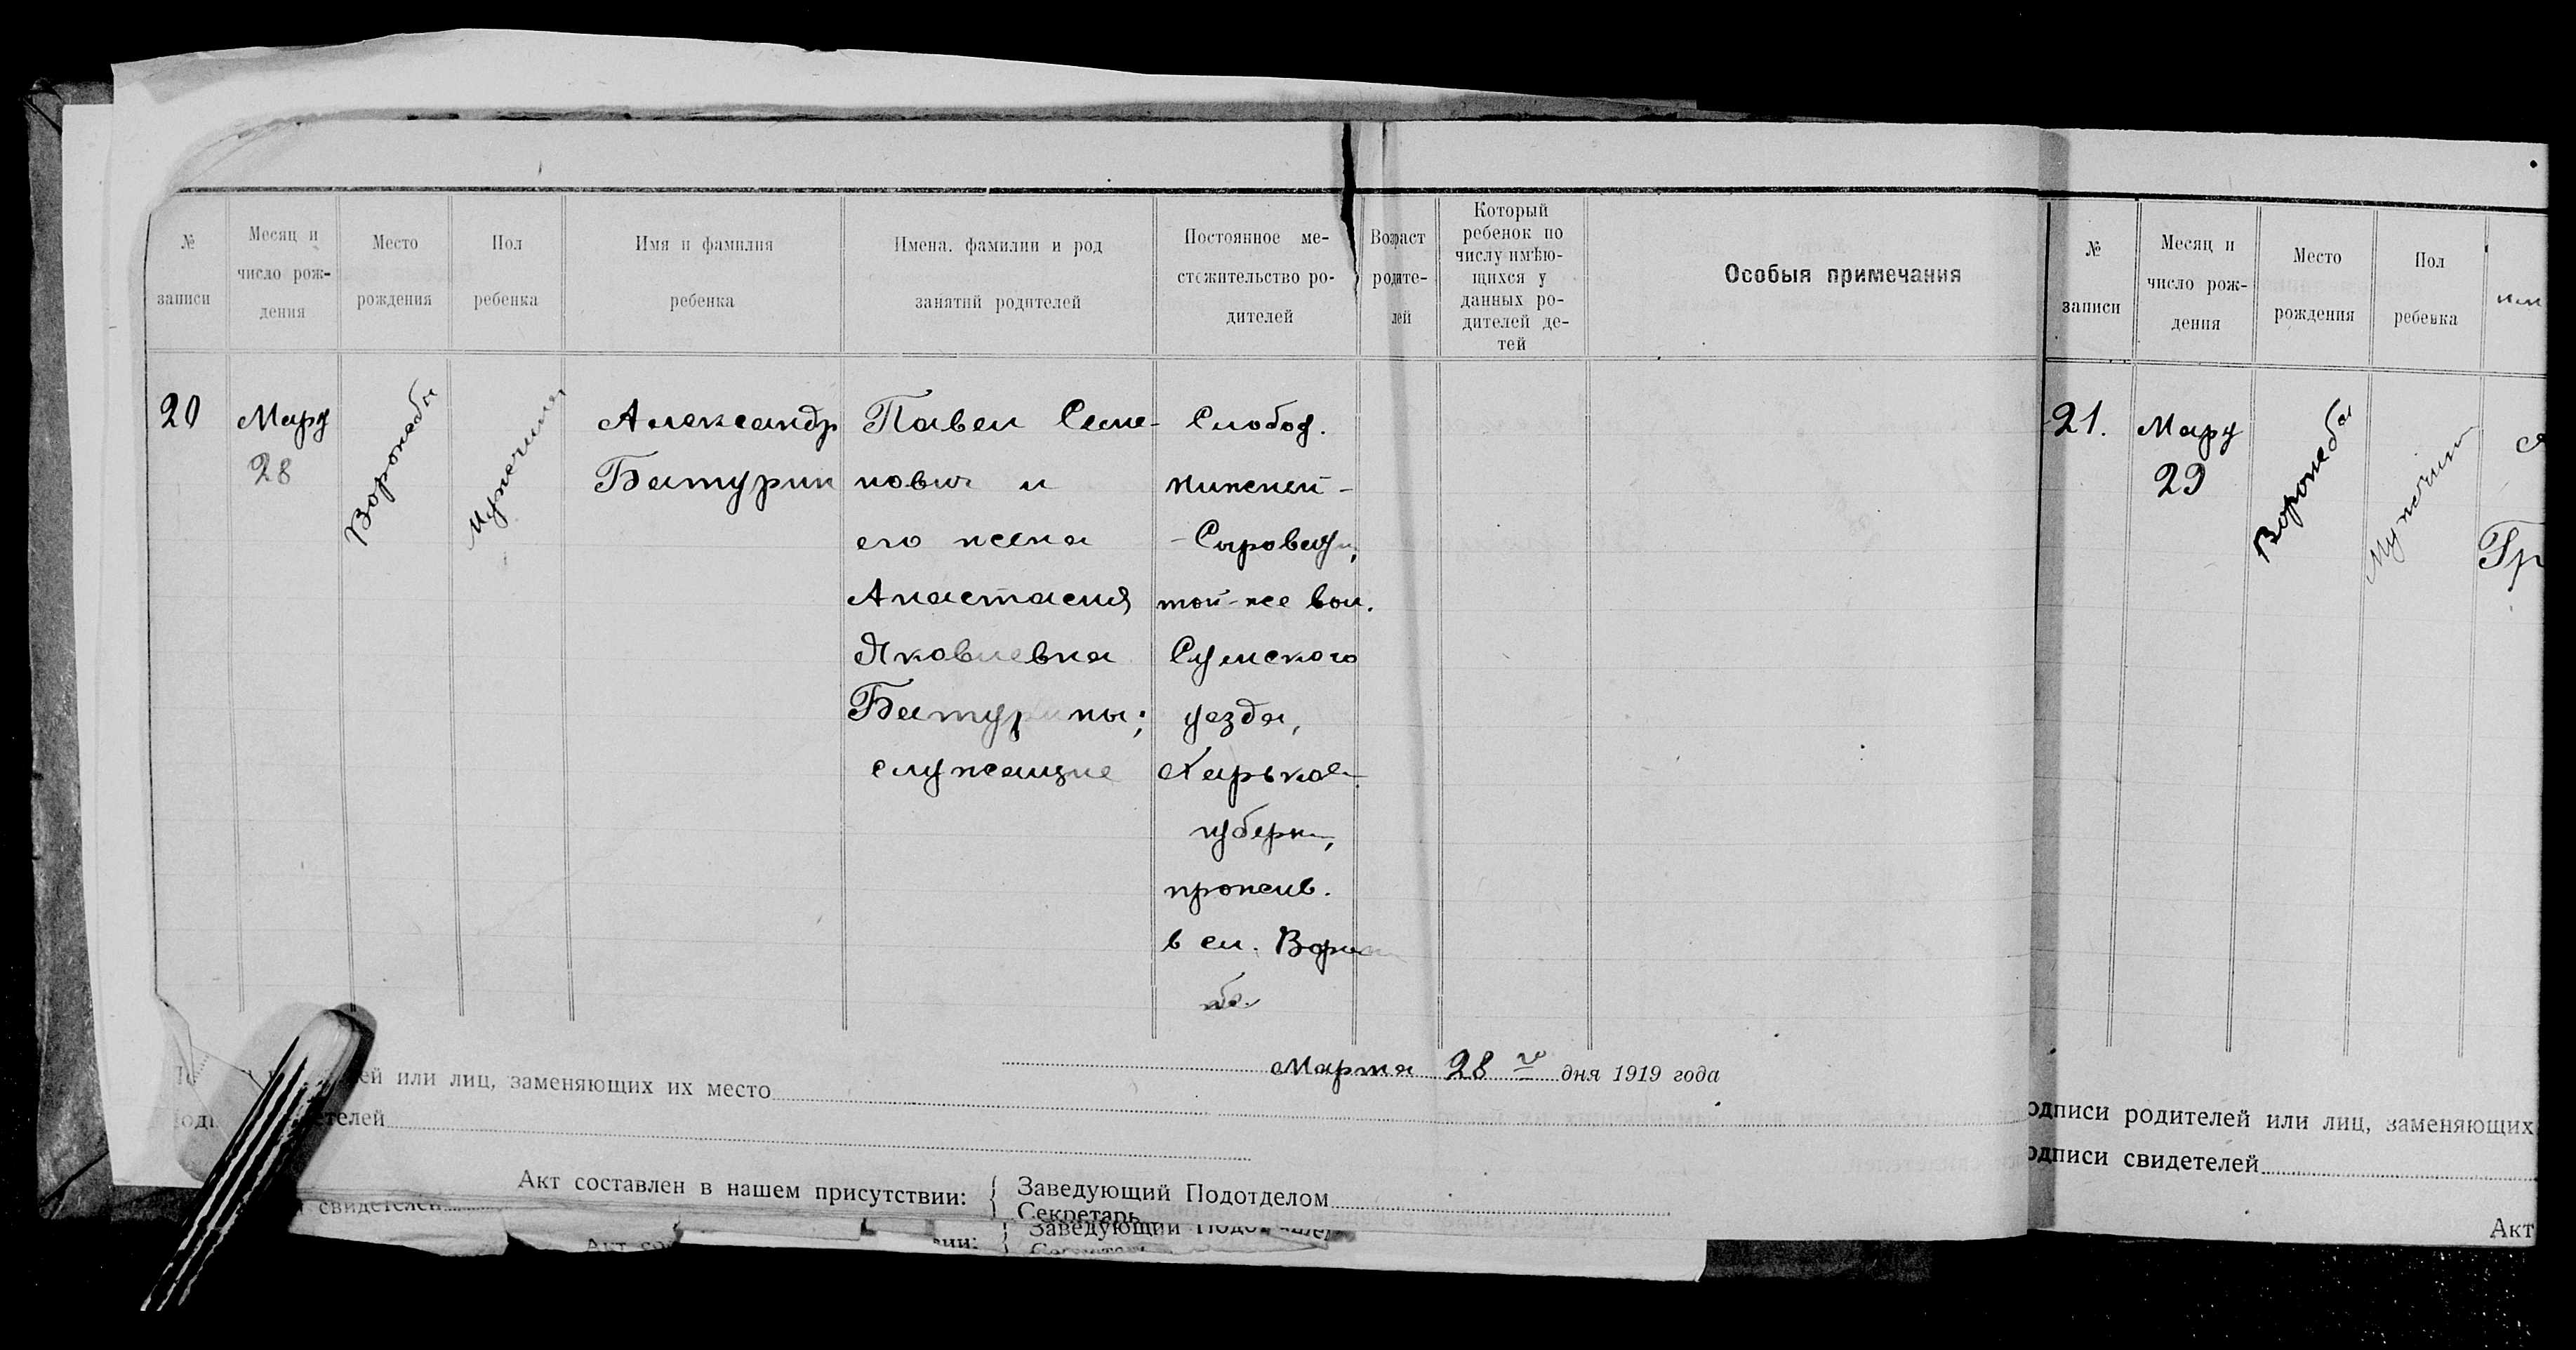 № записи
Месяц и число рождения
Место рождения
Пол ребенка
Имя и фамилия ребенка
Имена. фамилии и род занятий родителей
Постоянное местожительство родителей
Возраст родителей
Который ребенок по числу имѣющихся у данных родителей детей
Особыя примечания
20
Март
28
Воронеба
Мужчина
Александр
Батурин
Павел Семе-
нович и
его жена
Анастасия
Яковлевна
Батурины;
служащие
Слобод.
Нижней-
-Сыроват.,
той-же вол.
Сумского
уезда,
Харьков.
губерн.,
прожив.
в сл.
Марта 28 го дня 1919 года
ей или лиц, заменяющих их место
телей
Акт составлен в нашем присутствии:
Заведующий Подотделом
Секретарь
свидетелей
Заведующий
№ записи
Месяц и число рождения
Место рождения
Пол ребенка
21.
Март
29
Воронеба
Мужчина
Гр
одписи родителей или лиц, заменяющих
одписи свидетелей
Акт